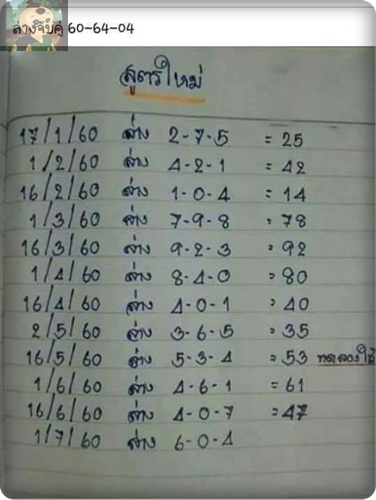 ล่างจับคู่ 60-64-04
สูตรใหม่
17/1/60 ล่าง 2-7-5 = 25
1/2/60 ล่าง 4-2-1 = 42
16/2/60 ล่าง 1-0-4 = 14
1/3/60 ล่าง 7-9-8 = 78
16/3/60 ล่าง 9-2-3 = 92
1/4/60 ล่าง 8-4-0 = 80
16/4/60 ล่าง 4-0-1 = 40
2/5/60 ล่าง 3-6-5 = 35
16/5/60 ล่าง 5-3-4 = 53 ทดลองใช้
1/6/60 ล่าง 4-6-1 = 61
16/6/60 ล่าง 4-0-7 = 47
1/7/60 ล่าง 6-0-4